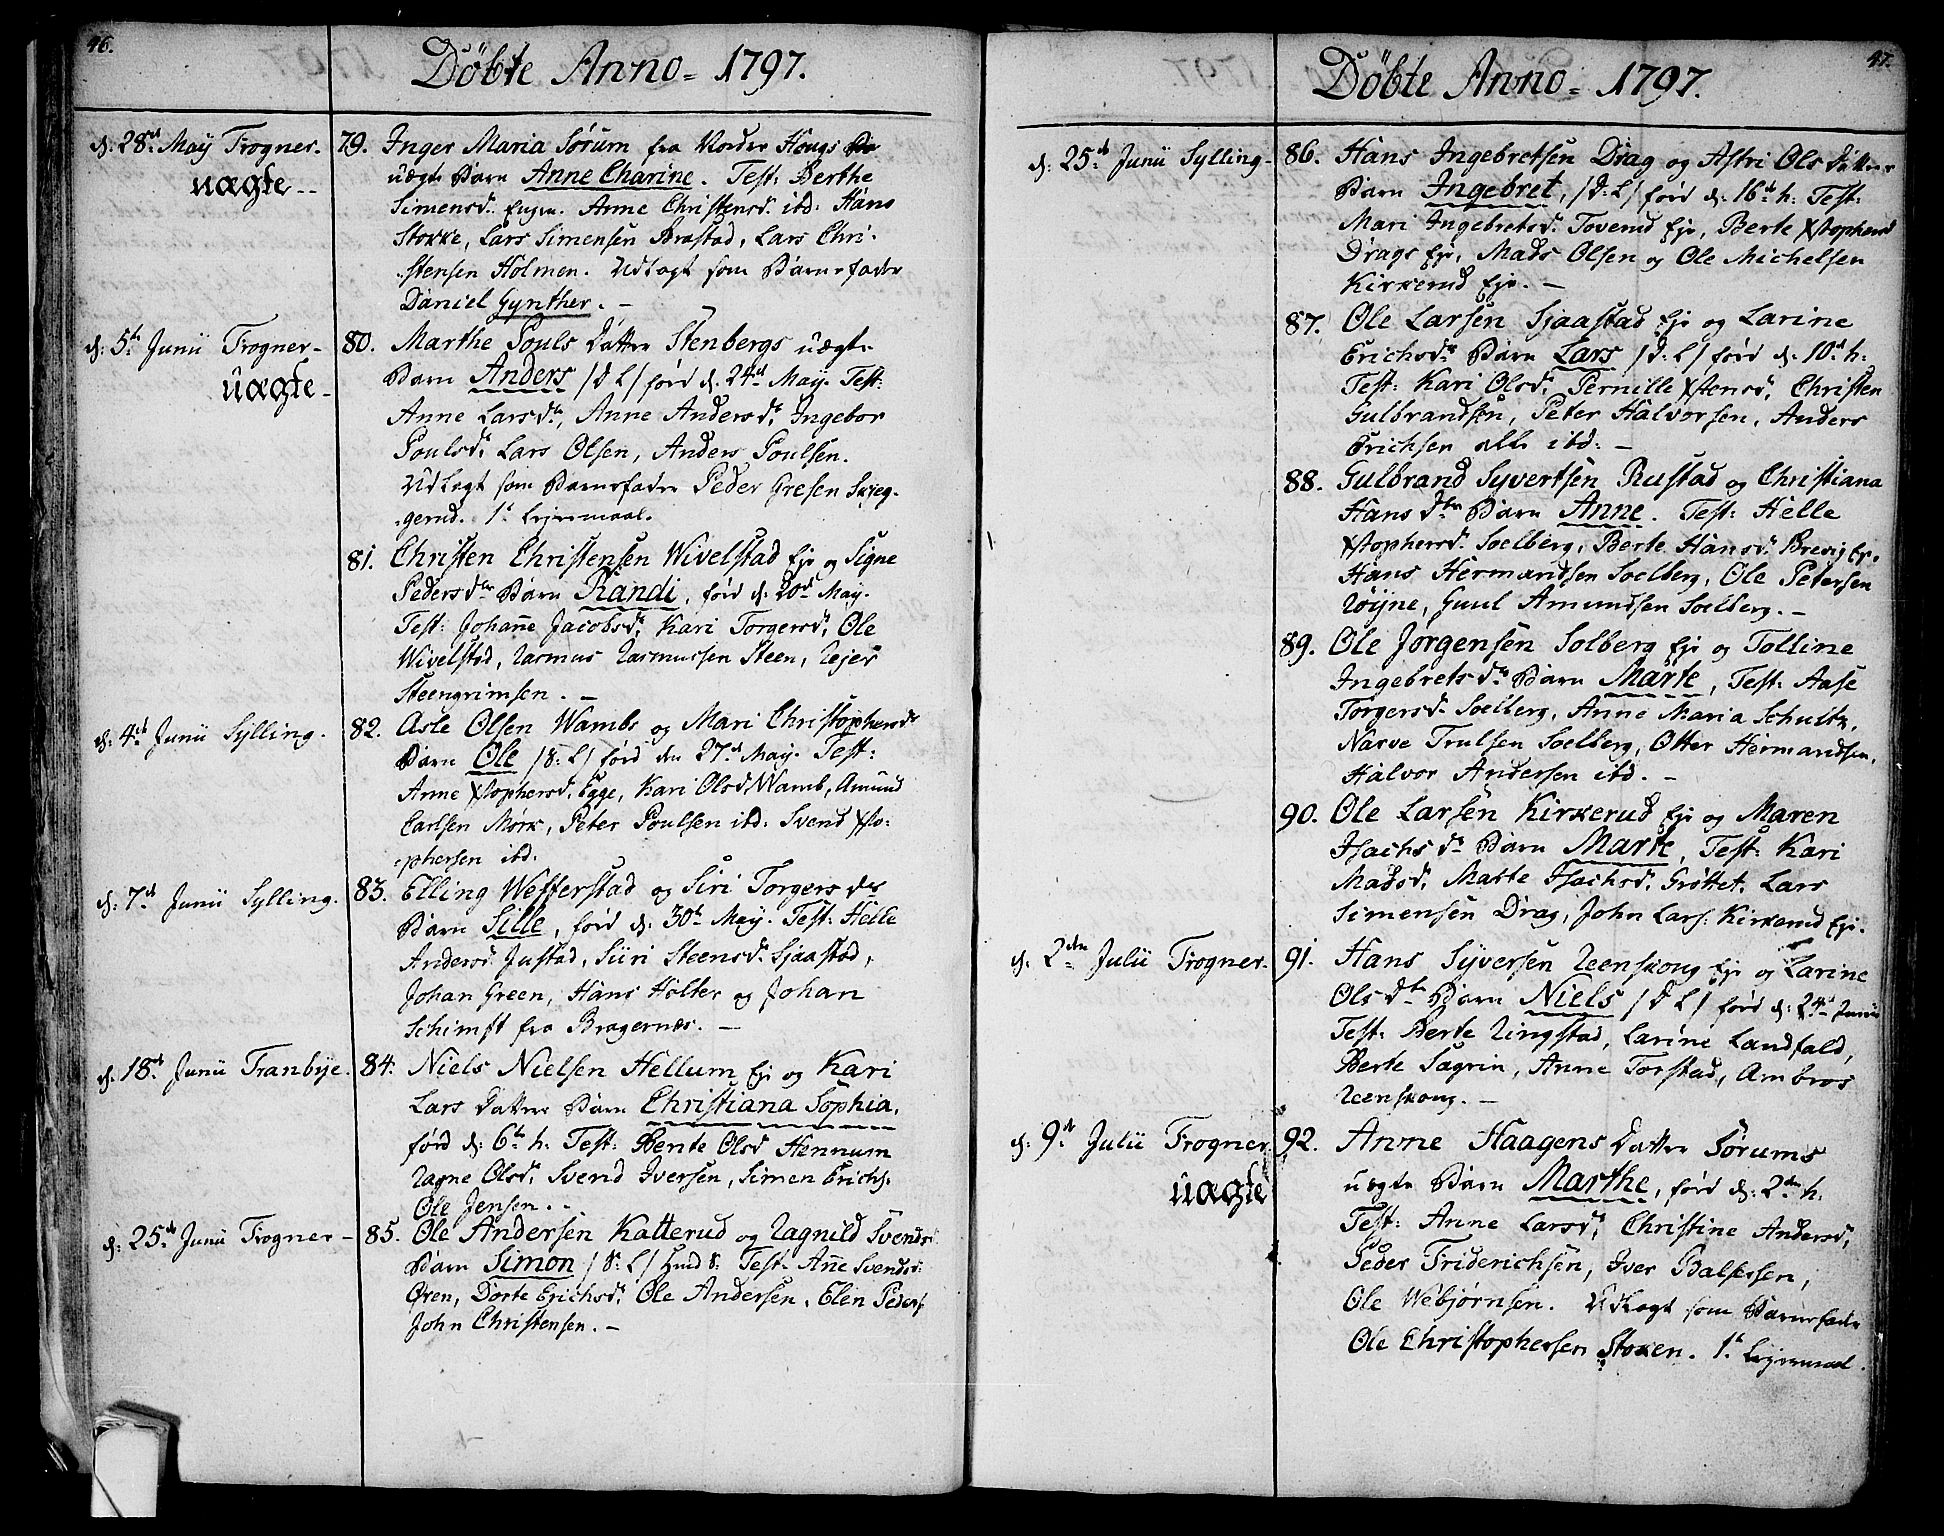 46.
Döbte Anno = 1797.
d: 28de May Frogner.
uægte --
79. Inger Maria Sørum fra Norder Hougs
uægte Barn Anne Charine. Test: Berthe
Simensd. Engen. Anne Christensd. ibd: Hans
Stokke, Lars Simensen Brastad, Lars Chri-
stensen Holmen. Udlagt som Barnefader
Daniel Gynther. -
d: 5te Junii Frogner -
uægte -
80. Marthe Pouls Datter Stenbergs uægte
Barn Anders /d L/ förd d. 24de May. Test:
Anne Larsdr, Anne Andersdr Ingebor
Poulsdr Lars Olsen, Anders Poulsen.
Udlagt som Barnefader Peder Gresen Skjeg-
gerud. 1te Lejermaal.
81. Christen Christensen Wivelstad Eje og Signe
Pedersdtr Barn Randi, förd d. 20de May.
Test: Johanne Jacobsdr, Kari Torgersdr, Ole
Wivelstad, Rasmus Rasmussen Steen, Rejer
Steengrimsen. -
d: 4de Junii Sylling.
82. Asle Olsen Wambs og Mari Christophersdr
Barn Ole /d: L/ förd den 27de May. Test:
Anne Xstophersd. Egge, Kari Olsd Wamb, Amund
Carlsen Mørk, Peter Poulsen ibd: Svend Xsto-
phersen ibd.
d: 7de Junii Sylling.
83. Elling Wefferstad og Siri Torgersdr
Barn Sille, förd d: 30te May. Test: Helle
Andersd. Justad, Siiri Steensd. Sjaastad,
Johan Green, Hans Holter og Johan
Schimft fra Bragernæs. -
d: 18de Junii Tranbÿe.
84. Niels Nielsen Hellum Eje og Kari
Lars Datters Barn Christiana Sophia,
förd d: 6te h: Test: Bente Olsd Hennum
Ragne Olsdr, Svend Iversen, Simen Erichs.
Ole Jensen. -
d: 25de Junii Frogner -
85. Ole Andersen Katterud og Ragnild Svendsd
Barn Simon /d: L/ Test. Anne Svendsd:
Øren, Dorte Erichsdr, Ole Andersen, Elen Peders
John Christensen. -
47.
Döbte Anno = 1797.
d: 25de Junii Sylling -
86. Hans Ingebretsen Drag og Astri Ols Datters
Barn Ingebret, /d: L/ förd d. 16de h: Test:
Mari Ingebretsd. Toverud Eje, Berte Xstophersd
Drags Eje, Mads Olsen og Ole Michelsen
Kirkerud Eje. -
87. Ole Larsen Sjaastad Eje og Larine
Erichsdr Barn Lars /d: L/ förd d. 10de h:
Test: Kari Olsdr, Pernille Xstensdr, Christen
Gulbrandsen, Peter Halvorsen, Anders
Erichsen alle ibd: -
88. Gulbrand Syvertsen Rustad og Christiana
Hans Dtr Barn Anne. Test: Helle
Xstophersd. Soelberg, Berte Hansd. Brevig Ej.
Hans Hermandsen Soelberg, Ole Petersen
Röÿne, Guul Amundsen Soelberg. -
89. Ole Jörgensen Solberg Eje og Tolline
Ingebretsdr Barn Marte, Test: Aase
Torgersd. Soelberg, Anne Maria Schultz,
Narve Trulsen Soelberg, Otter Hermandsen,
Halvor Andersen ibd. -
90. Ole Larsen Kirkerud Eje og Maren
Isachsdr Barn Marte, Test: Kari
Madsdr, Marte Isachsdr, Gröttet, Lars
Simensen Drag, John Lars: Kirkerud Eje.
d. 2den Julii Frogner.
91. Hans Syversen Reenskoug Eje og Larine
Olsdtr Barn Niels /d L/ förd d: 24de Junii
Test: Berte Ringstad, Larine Landfald,
Berte Sagrin, Anne Torstad, Ambros
Reenskoug. -
d: 9de Julii Frogner
uægte
92. Anne Haagens Datter Sørums
uægte Barn Marthe, förd d: 2den h.
Test: Anne Larsdr, Christine Andersdr,
Peder Friderichsen, Iver Balsersen,
Ole Webjørnsen. Udlagt som Barnefader
Ole Christophersen Stoken. 1te Lejermaal.